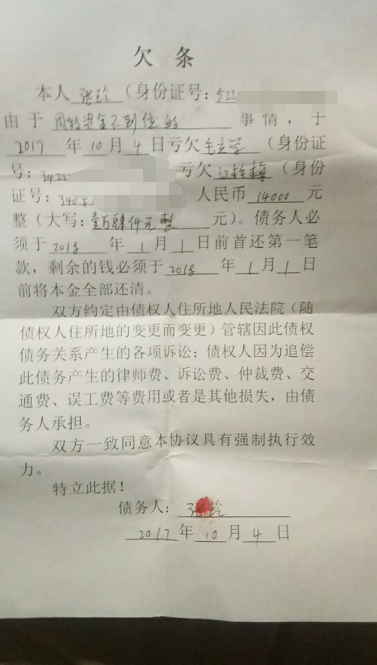 欠条
本人 张玲 (身份证号: 522
由于 因特资金不到位的 事情,于
2017 年 10 月 4 日亏欠 (身份证
号: 3422 亏欠 (身份
证号: 342 人民币 14000 元
整(大写: 壹万肆仟元整 元)。债务人必
须于 2018 年 1 月 1 日前首还第一笔
款,剩余的钱必须于 2018 年 1 月 1 日
前将本金全部还清。
双方约定由债权人住所地人民法院(随
债权人住所地的变更而变更)管辖因此债权
债务关系产生的各项诉讼;债权人因为追偿
此债务产生的律师费、诉讼费、仲裁费、交
通费、误工费等费用或者是其他损失,由债
务人承担。
双方一致同意本协议具有强制执行效
力。
特立此据!
债务人: 张玲
2017 年 10 月 4 日